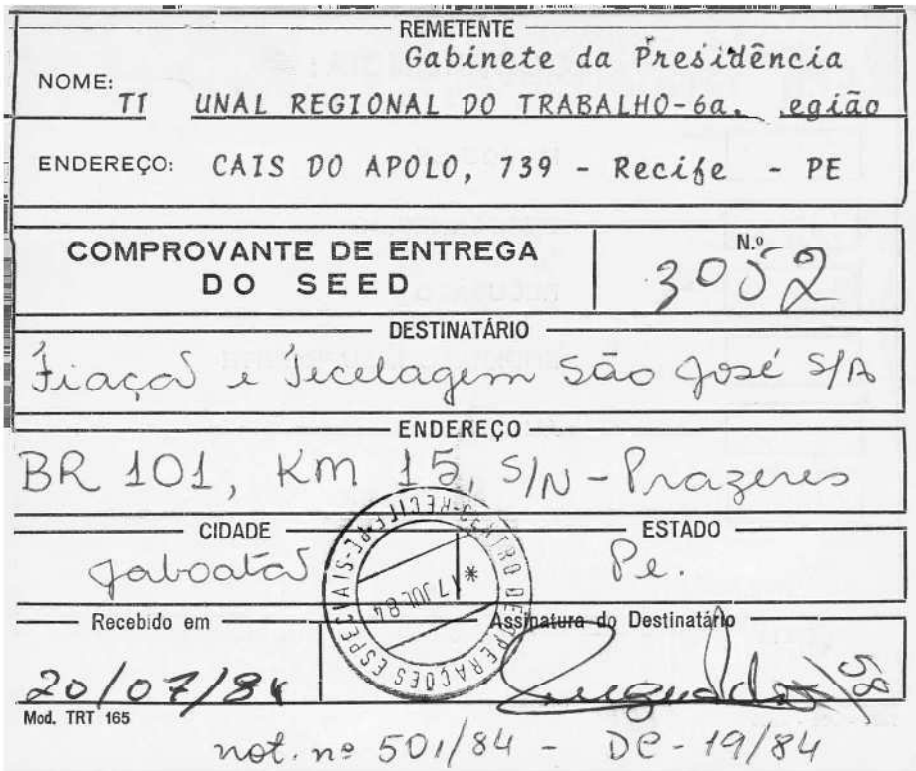 REMETENTE
Gabinete da Presidência
NOME:
T1 UNAL REGIONAL DO TRABALHO-6a. egião
ENDEREÇO: CAIS DO APOLO, 739 - Recife - PE
COMPROVANTE DE ENTREGA
DO SEED
N.º
3052
DESTINATÁRIO
Fiação e Tecelagem São José S/A
ENDEREÇO
BR 101, Km 15, S/N - Prazeres
CIDADE
Jaboatão
ESTADO
Pe.
CENTRO DE OPERAÇÕES ESPECIAIS-RECIFE-PE
17 JUL 84
*
Recebido em
Assinatura do Destinatário
20/07/84
58
Mod. TRT 165
not. nº 501/84 - DC - 19/84